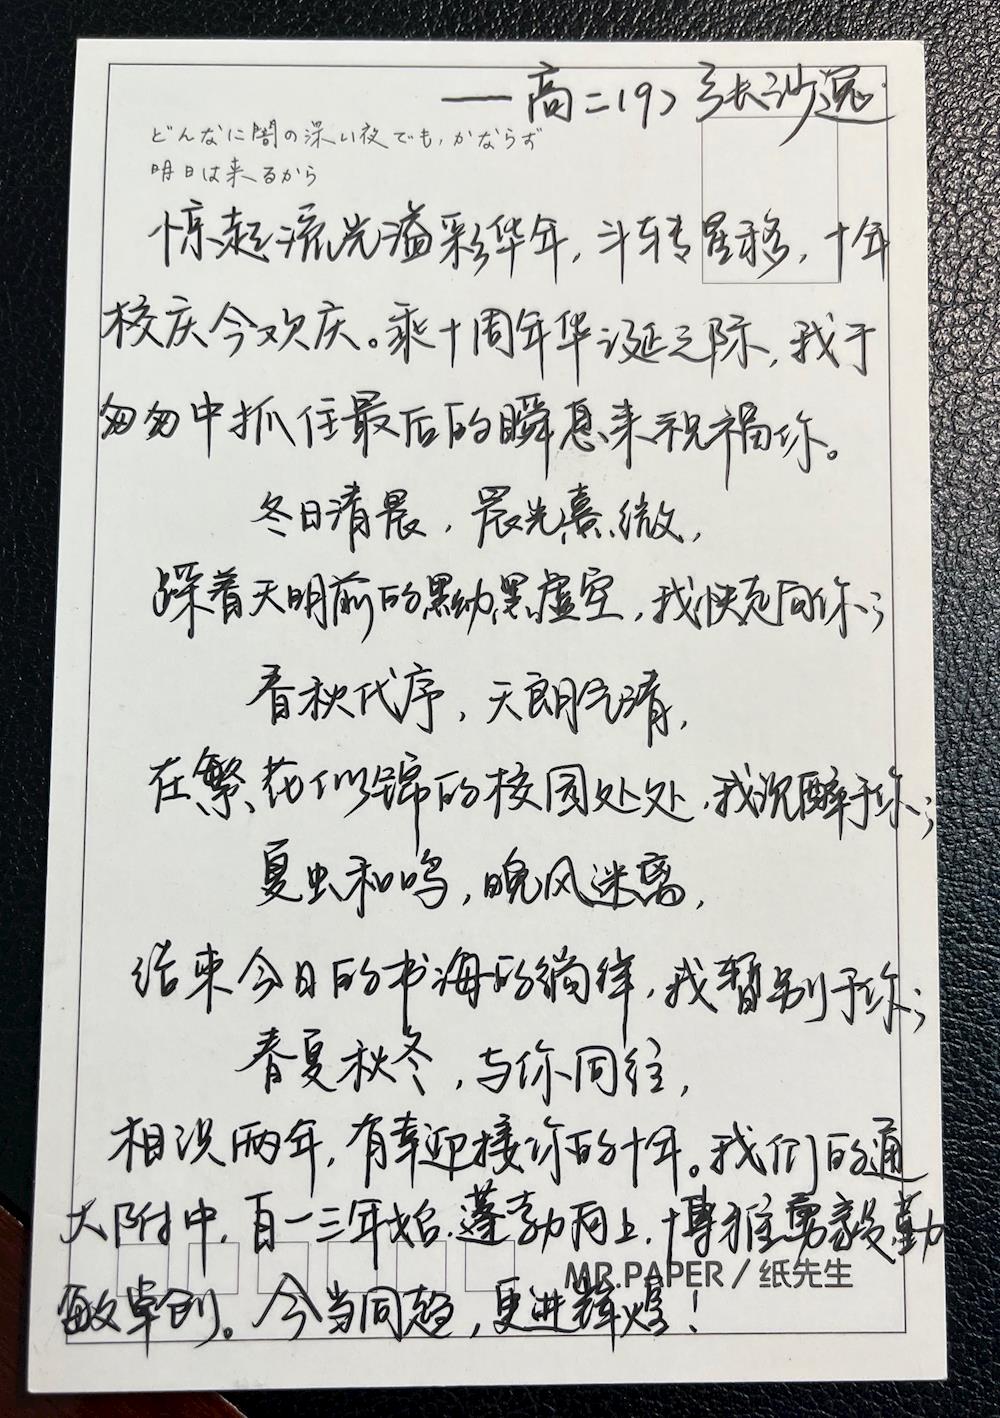 ——高二(9) 张沙逸
どんなに闇の深い夜でも,かならず
明日は来るから
惊起流光溢彩华年,斗转星移,十年
校庆今欢庆。乘十周年华诞之际,我于
匆匆中抓住最后的瞬息来祝福你。
冬日清晨,晨光熹微,
踩着天明前的黑黝黑虚空,我快走向你;
春秋代序,天朗气清,
在繁花似锦的校园处处,我沉醉于你;
夏虫和鸣,晚风迷离,
结束今日的书海的徜徉,我暂别于你;
春夏秋冬,与你同往,
相识两年,有幸迎接你的十年。我们的通
大附中,自一三年始.蓬勃向上,博雅勇毅勤
敏卓创。今当同趋,更进辉煌!
MR.PAPER / 纸先生